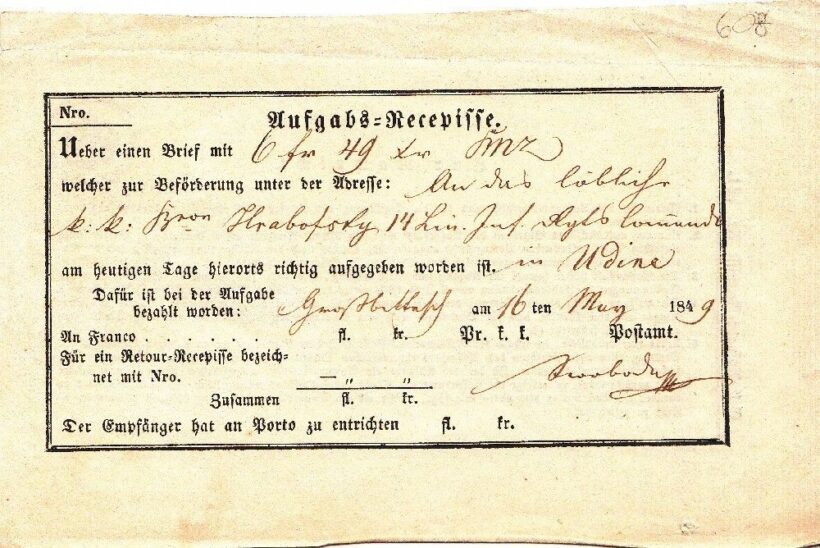 608
Nro.
Aufgabs-Recepisse.
Ueber einen Brief mit 6 fr 49 xr
welcher zur Beförderung unter der Adresse: An das löbliche
k: k: Hrabofsky 14 Lin. Inf. Rgts Com̅ando
am heutigen Tage hierorts richtig aufgegeben worden ist. in Udine
Dafür ist bei der Aufgabe
bezahlt worden: Großbittesch am 16 ten May 1849
An Franco . . . . . . . fl. kr. Pr. k. k. Postamt.
Für ein Retour-Recepisse bezeich-
net mit Nro. — „ „ Swoboda
Zusammen fl. kr.
Der Empfänger hat an Porto zu entrichten fl. kr.